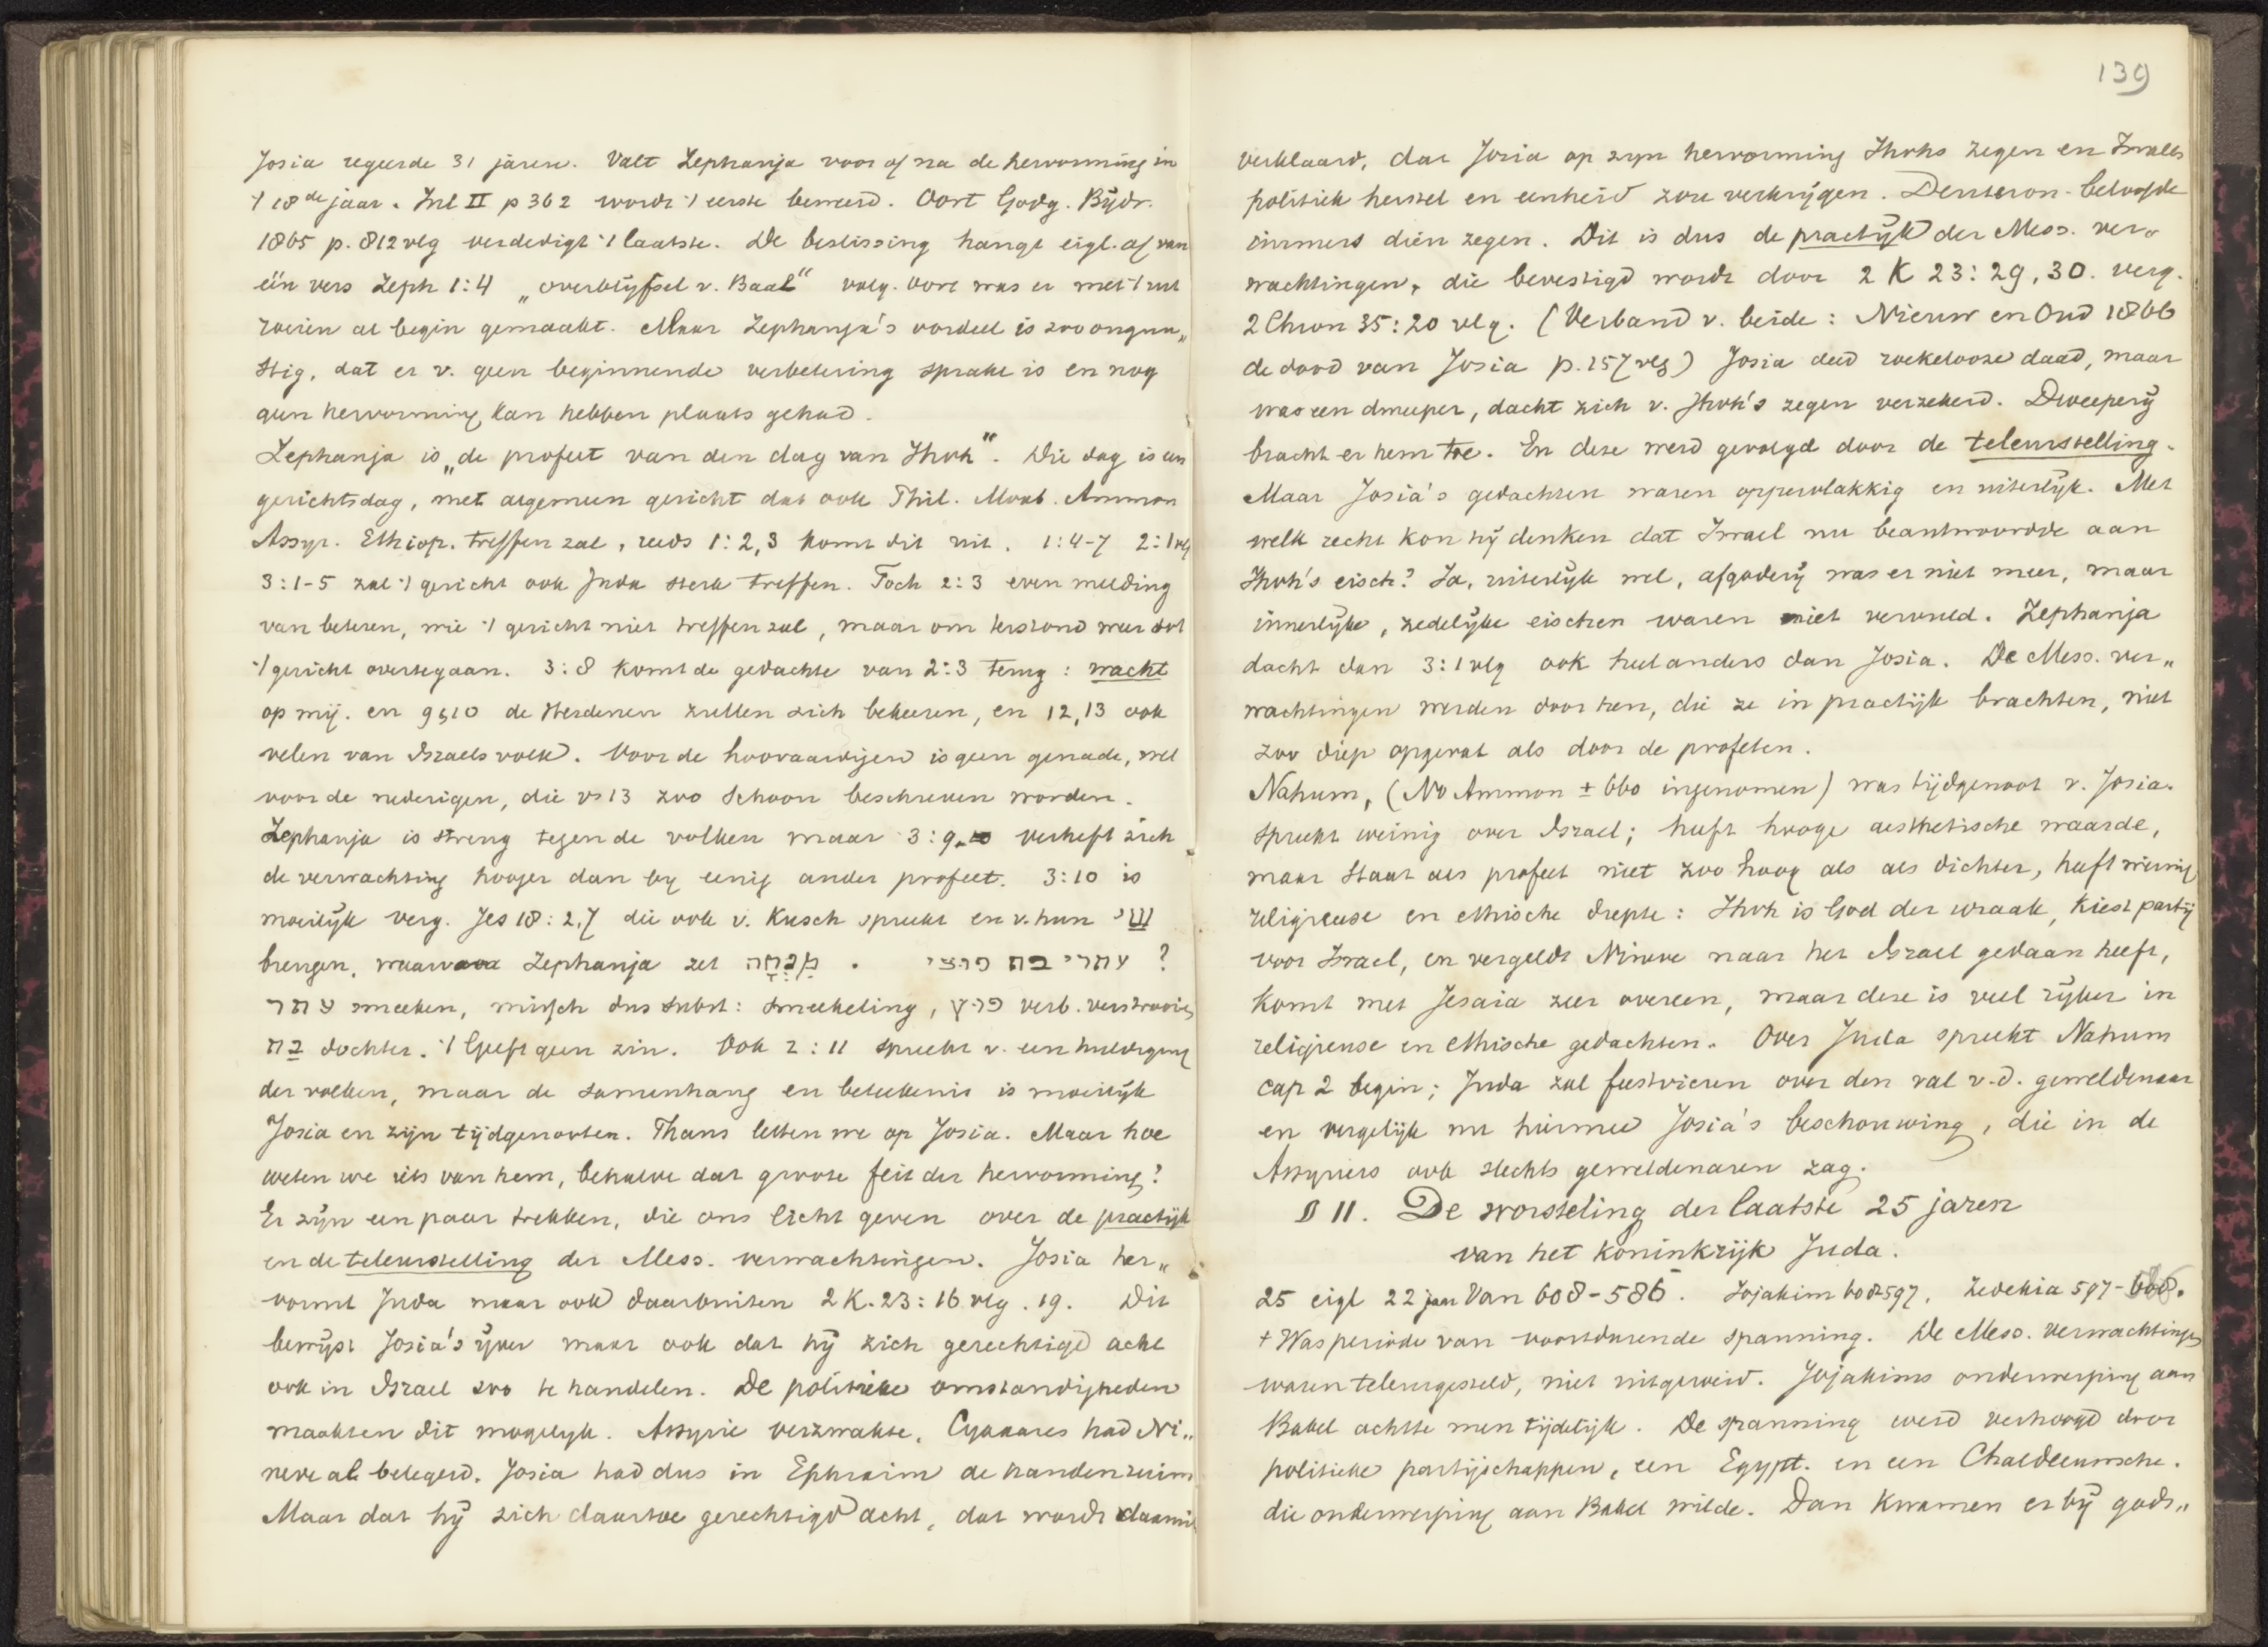 Josia regeerde 31 jaren. Valt Zephanja voor of na de hervorming in
't 18de jaar. Inl II p 362 wordt 't eerste beweerd. Oort Godg. Bijdr.
1865 p. 812 vlg verdedigt 't laatste. De beslissing hangt eigl. af van
één vers Zeph 1:4 „overblijfsel v. Baal“ volg. Oort was er met 't uit
roeien al begin gemaakt. Maar Zephanja's oordeel is zoo ongun„
stig, dat er v. geen beginnende verbetering sprake is en nog
geen hervorming kan hebben plaats gehad.
Zephanja is „de profeet van den dag van Jhvh“. Die dag is een
gerichtsdag, met algemeen gericht dat ook Phil. Moab. Ammon
Assyr. Ethiop. treffen zal, reeds 1:2,3 komt dit uit. 1:4-7 2:1 vlg
3:1-5 zal 't gericht ook Juda sterk treffen. Toch 2:3 even melding
van beteren, wie 't gericht niet treffen zal, maar om terstond weer tot
't gericht overtegaan. 3:8 komt de gedachte van 2:3 terug: wacht
op mij. en 9,10 de Heidenen zullen zich bekeeren, en 12,13 ook
velen van Israels volk. Voor de hoovaardijen is geen genade, wel
voor de nederigen, die vs 13 zoo schoon beschreven worden.
Zephanja is streng tegen de volken maar 3:9 verheft zich
de verwachting hooger dan by eenig ander profeet. 3:10 is
moeilijk verg. Jes 18:2,7 die ook v. Kusch spreekt en v. hun שי
brengen, waarvoor Zephanja zet מִנְחָה . עתרי בת פוצי ?
עתר smeeken, missch dus subst: smeekeling, פוץ verb. verstrooien
בת dochter. 't Geeft geen zin. Ook 2:11 spreekt v. een huldiging
der volken, maar de samenhang en beteekenis is moeilijk
Josia en zijn tijdgenooten. Thans letten we op Josia. Maar hoe
weten we iets van hem, behalve dat groote feit der hervorming?
Er zijn een paar trekken, die ons licht geven over de practijk
en de teleurstelling der Mess. verwachtingen. Josia her„
vormt Juda maar ook daarbuiten 2 K. 23:16 vlg. 19. Dit
bewijst Josia's ijver maar ook dat hij zich gerechtigd acht
ook in Israel zoo te handelen. De politieke omstandigheden
maakten dit mogelijk. Assyrie verzwakte. Cyaxares had Ni„
neve al belegerd. Josia had dus in Ephraim de handen ruim
Maar dat hij zich daartoe gerechtigd acht, dat wordt daaruit
139
verklaard, dat Josia op zijn hervorming Jhvhs zegen en Israels
politiek herstel en eenheid zou verkrijgen. Deuteron. beloofde
immers dien zegen. Dit is dus de practijk der Mess. ver„
wachtingen, die bevestigd wordt door 2 K 23:29,30. verg.
2 Chron 35:20 vlg. (Verband v. beide: Nieuw en Oud 1866
de dood van Josia p. 157 vlg) Josia deed roekelooze daad, maar
was een dweeper, dacht zich v. Jhvh's zegen verzekerd. Dweeperij
bracht er hem toe. En deze werd gevolgd door de teleurstelling.
Maar Josia's gedachten waren oppervlakkig en uiterlijk. Met
welk recht kon hij denken dat Israel nu beantwoordde aan
Jhvh's eisch? Ja, uiterlijk wel, afgoderij was er niet meer, maar
innerlijke, zedelijke eischen waren niet vervuld. Zephanja
dacht dan 3:1 vlg ook heel anders dan Josia. De Mess. ver„
wachtingen werden door hen, die ze in practijk brachten, niet
zoo diep opgevat als door de profeten.
Nahum, (No Ammon ± 660 ingenomen) was tijdgenoot v. Josia.
spreekt weinig over Israel; heeft hooge aesthetische waarde,
maar staat als profeet niet zoo hoog als als dichter, heeft weinig
religieuse en ethische diepte: Jhvh is God der wraak, kiest partij
voor Israel, en vergeldt Nineve naar het Israel gedaan heeft,
komt met Jesaia zeer overeen, maar deze is veel rijker in
religieuse en ethische gedachten. Over Juda spreekt Nahum
cap 2 begin; Juda zal feestvieren over den val v.d. geweldenaar
en vergelijk nu hiermee Josia's beschouwing, die in de
Assyriers ook slechts geweldenaren zag.
§ 11. De worsteling der laatste 25 jaren
van het koninkrijk Juda.
25 eigl 22 jaar van 608-586. Jojakim 608-597. Zedekia 597-586.
+ Was periode van voortdurende spanning. De Mess. verwachtingen
waren teleurgesteld, niet uitgeroeid. Jojakims onderwerping aan
Babel achtte men tijdelijk. De spanning werd verhoogd door
politieke partijschappen, een Egypt. en een Chaldeeuwsche.
die onderwerping aan Babel wilde. Dan kwamen er bij gods„